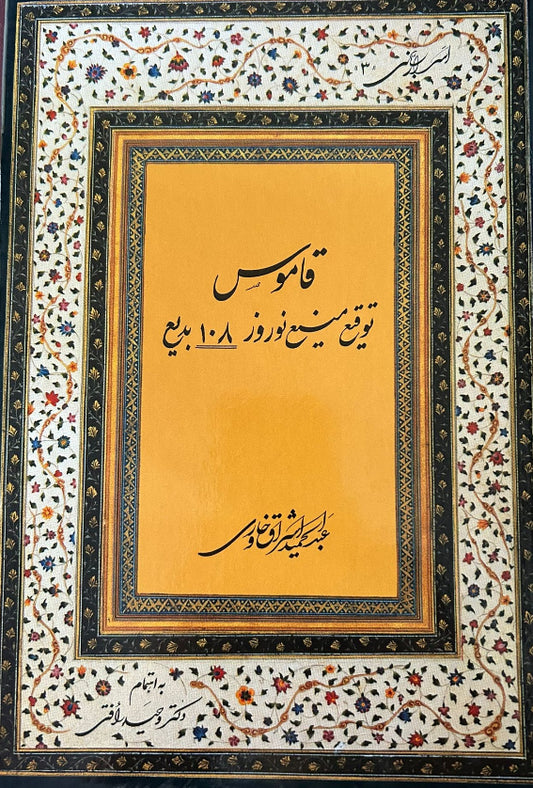 اسرار ربانی
قاموس
توقیع منیع نوروز ۱۰۸ بدیع
عبدالحمید اشراق خاوری
به اهتمام
دکتر وحید رأفتی